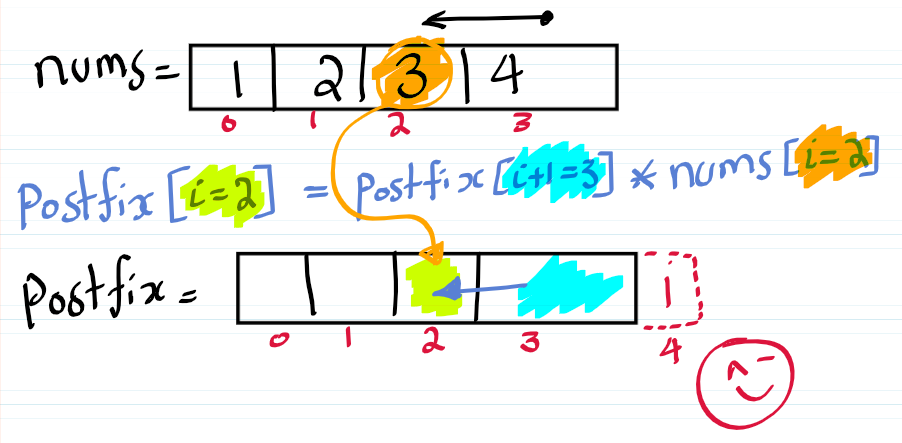 nums = 1 2 3 4
0 1 2 3
Postfix [i=2] = Postfix [i+1=3] * nums [i=2]
Postfix = 1
0 1 2 3 4